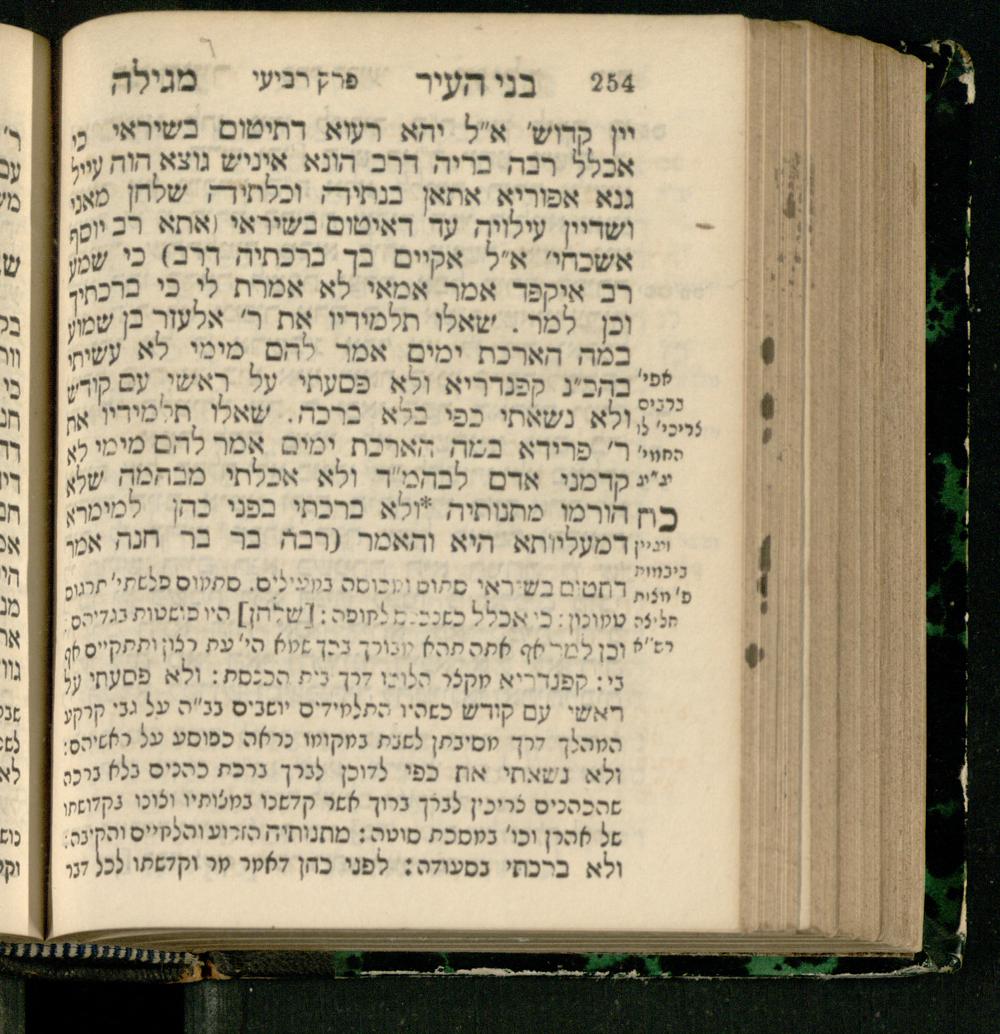 254 בני העיר פרק רביעי מגילה
יין קדוש' א"ל יהא רעוא דתיטום בשיראי כי
אכלל רבה בריה דרב הונא איניש גוצא הוה עייל
גנא אפוריא אתאן בנתיה וכלתיה שלחן מאני
ושדיין עילויה עד דאיטום בשיראי (אתא רב יוסף
אשכחי' א"ל אקיים בך ברכתיה דרב) כי שמע
רב איקפד אמר אמאי לא אמרת לי כי ברכתיך
וכן למר. שאלו תלמידיו את ר' אלעזר בן שמוע
במה הארכת ימים אמר להם מימי לא עשיתי
בהכ"נ קפנדריא ולא פסעתי על ראשי עם קודש
ולא נשאתי כפי בלא ברכה. שאלו תלמידיו את
ר' פרידא במה הארכת ימים אמר להם מימי לא
קדמני אדם לבהמ"ד ולא אכלתי מבהמה שלא
הורמו מתנותיה *ולא ברכתי בפני כהן למימרא
דמעליותא היא והאמר (רבה בר בר חנה אמר
אפי'
ברבים
צריכי' לו
החמי'
יג"יג
כח
ועיין
ביבמות
פ' מצות
חליצה
רש"א
דחטום בשיראי סתום ומכוסה במעילים. סתמום פלשתי' תרגום
טמונון: כי אכלל לחופה: [שלחן] היו פושטות בגדיהם:
וכן למר אף אתה תהא מבורך בהך שמא הי' עת רצון ותתקיים אף
בי: קפנדריא מקצר הלוכו דרך בית הכנסת: ולא פסעתי על
ראשי עם קודש כשהיו התלמידים יושבים בב"ה על גבי קרקע
המהלך דרך מסיבתן לשבת במקומו נראה כפוסע על ראשיהם:
ולא נשאתי את כפי לדוכן לברך ברכת כהנים בלא ברכה
שהכהנים צריכין לברך ברוך אשר קדשנו במצותיו וצונו בקדושתו
של אהרן וכו' במסכת סוטה: מתנותיה הזרוע והלחיים והקיבה:
ולא ברכתי בסעודה: לפני כהן דאמר מר וקדשתו לכל דבר